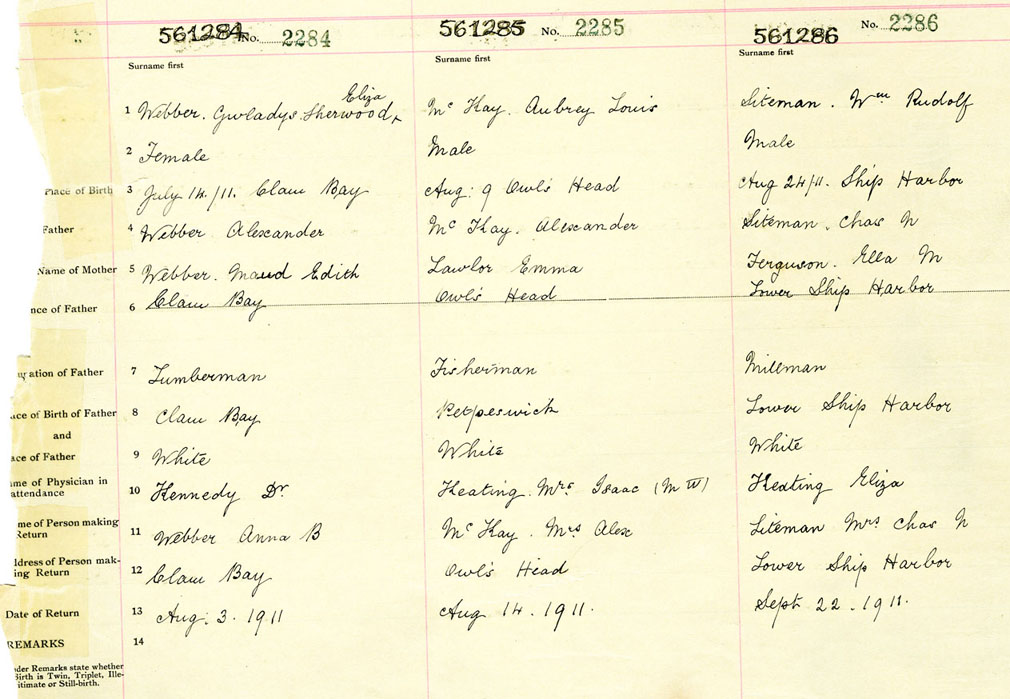 561284 No. 2284 561285 No. 2285 561286 No. 2286
Surname first Surname first Surname first
Eliza
1 Webber. Gwladys. Sherwood, Mc Kay. Aubrey Louis Siteman. Wm Rudolf
2 Female Male Male
Place of Birth 3 July 14./11. Clam Bay Aug: 9 Owl's Head Aug 24/11. Ship Harbor
Father 4 Webber Alexander Mc Kay. Alexander Siteman. Chas N
Name of Mother 5 Webber. Maud Edith Lawlor Emma Ferguson. Ella M
nce of Father 6 Clam Bay Owl's Head Lower Ship Harbor
ation of Father 7 Lumberman Fisherman Millman
ace of Birth of Father 8 Clam Bay Petpeswick Lower Ship Harbor
and
ace of Father 9 White White White
me of Physician in
attendance 10 Kennedy Dr. Keating. Mrs. Isaac (M W) Keating Eliza
me of Person making
Return 11 Webber Anna B Mc Kay. Mrs Alex Siteman Mrs Chas N
ddress of Person mak-
ing Return 12 Clam Bay Owl's Head Lower Ship Harbor
Date of Return 13 Aug. 3. 1911 Aug 14. 1911. Sept 22. 1911.
REMARKS 14
der Remarks state whether
Birth is Twin, Triplet, Ille-
itimate or Still-birth.